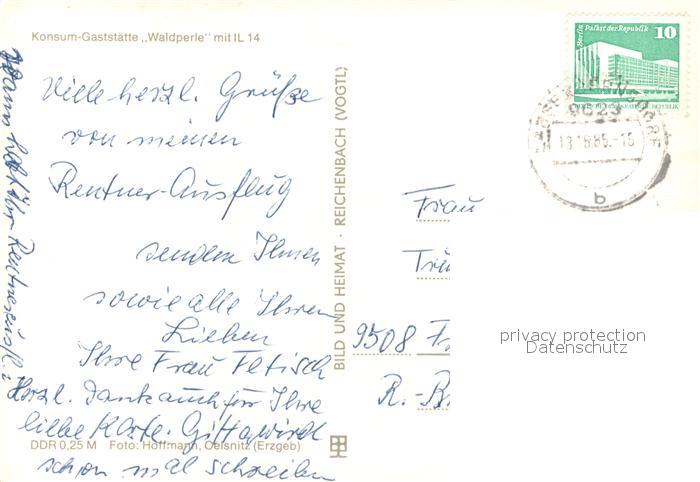 Konsum-Gaststätte „Waldperle" mit IL 14
Viele herzl. Grüße
von meinen
Rentner-Ausflug
senden Ihnen
sowie alle Ihren
Lieben
Ihre Frau Fetisch
Herzl. Dank auch für Ihre
liebe Karte. Gitta wird
schon mal schreiben
Wann habt Ihr
DDR 0,25 M Foto: Hoffmann, Oelsnitz (Erzgeb)
BILD UND HEIMAT · REICHENBACH (VOGTL)
Berlin Palast der Republik 10
9623
13.8.85.-15
b
Frau
9508
R.-B
privacy protection
Datenschutz